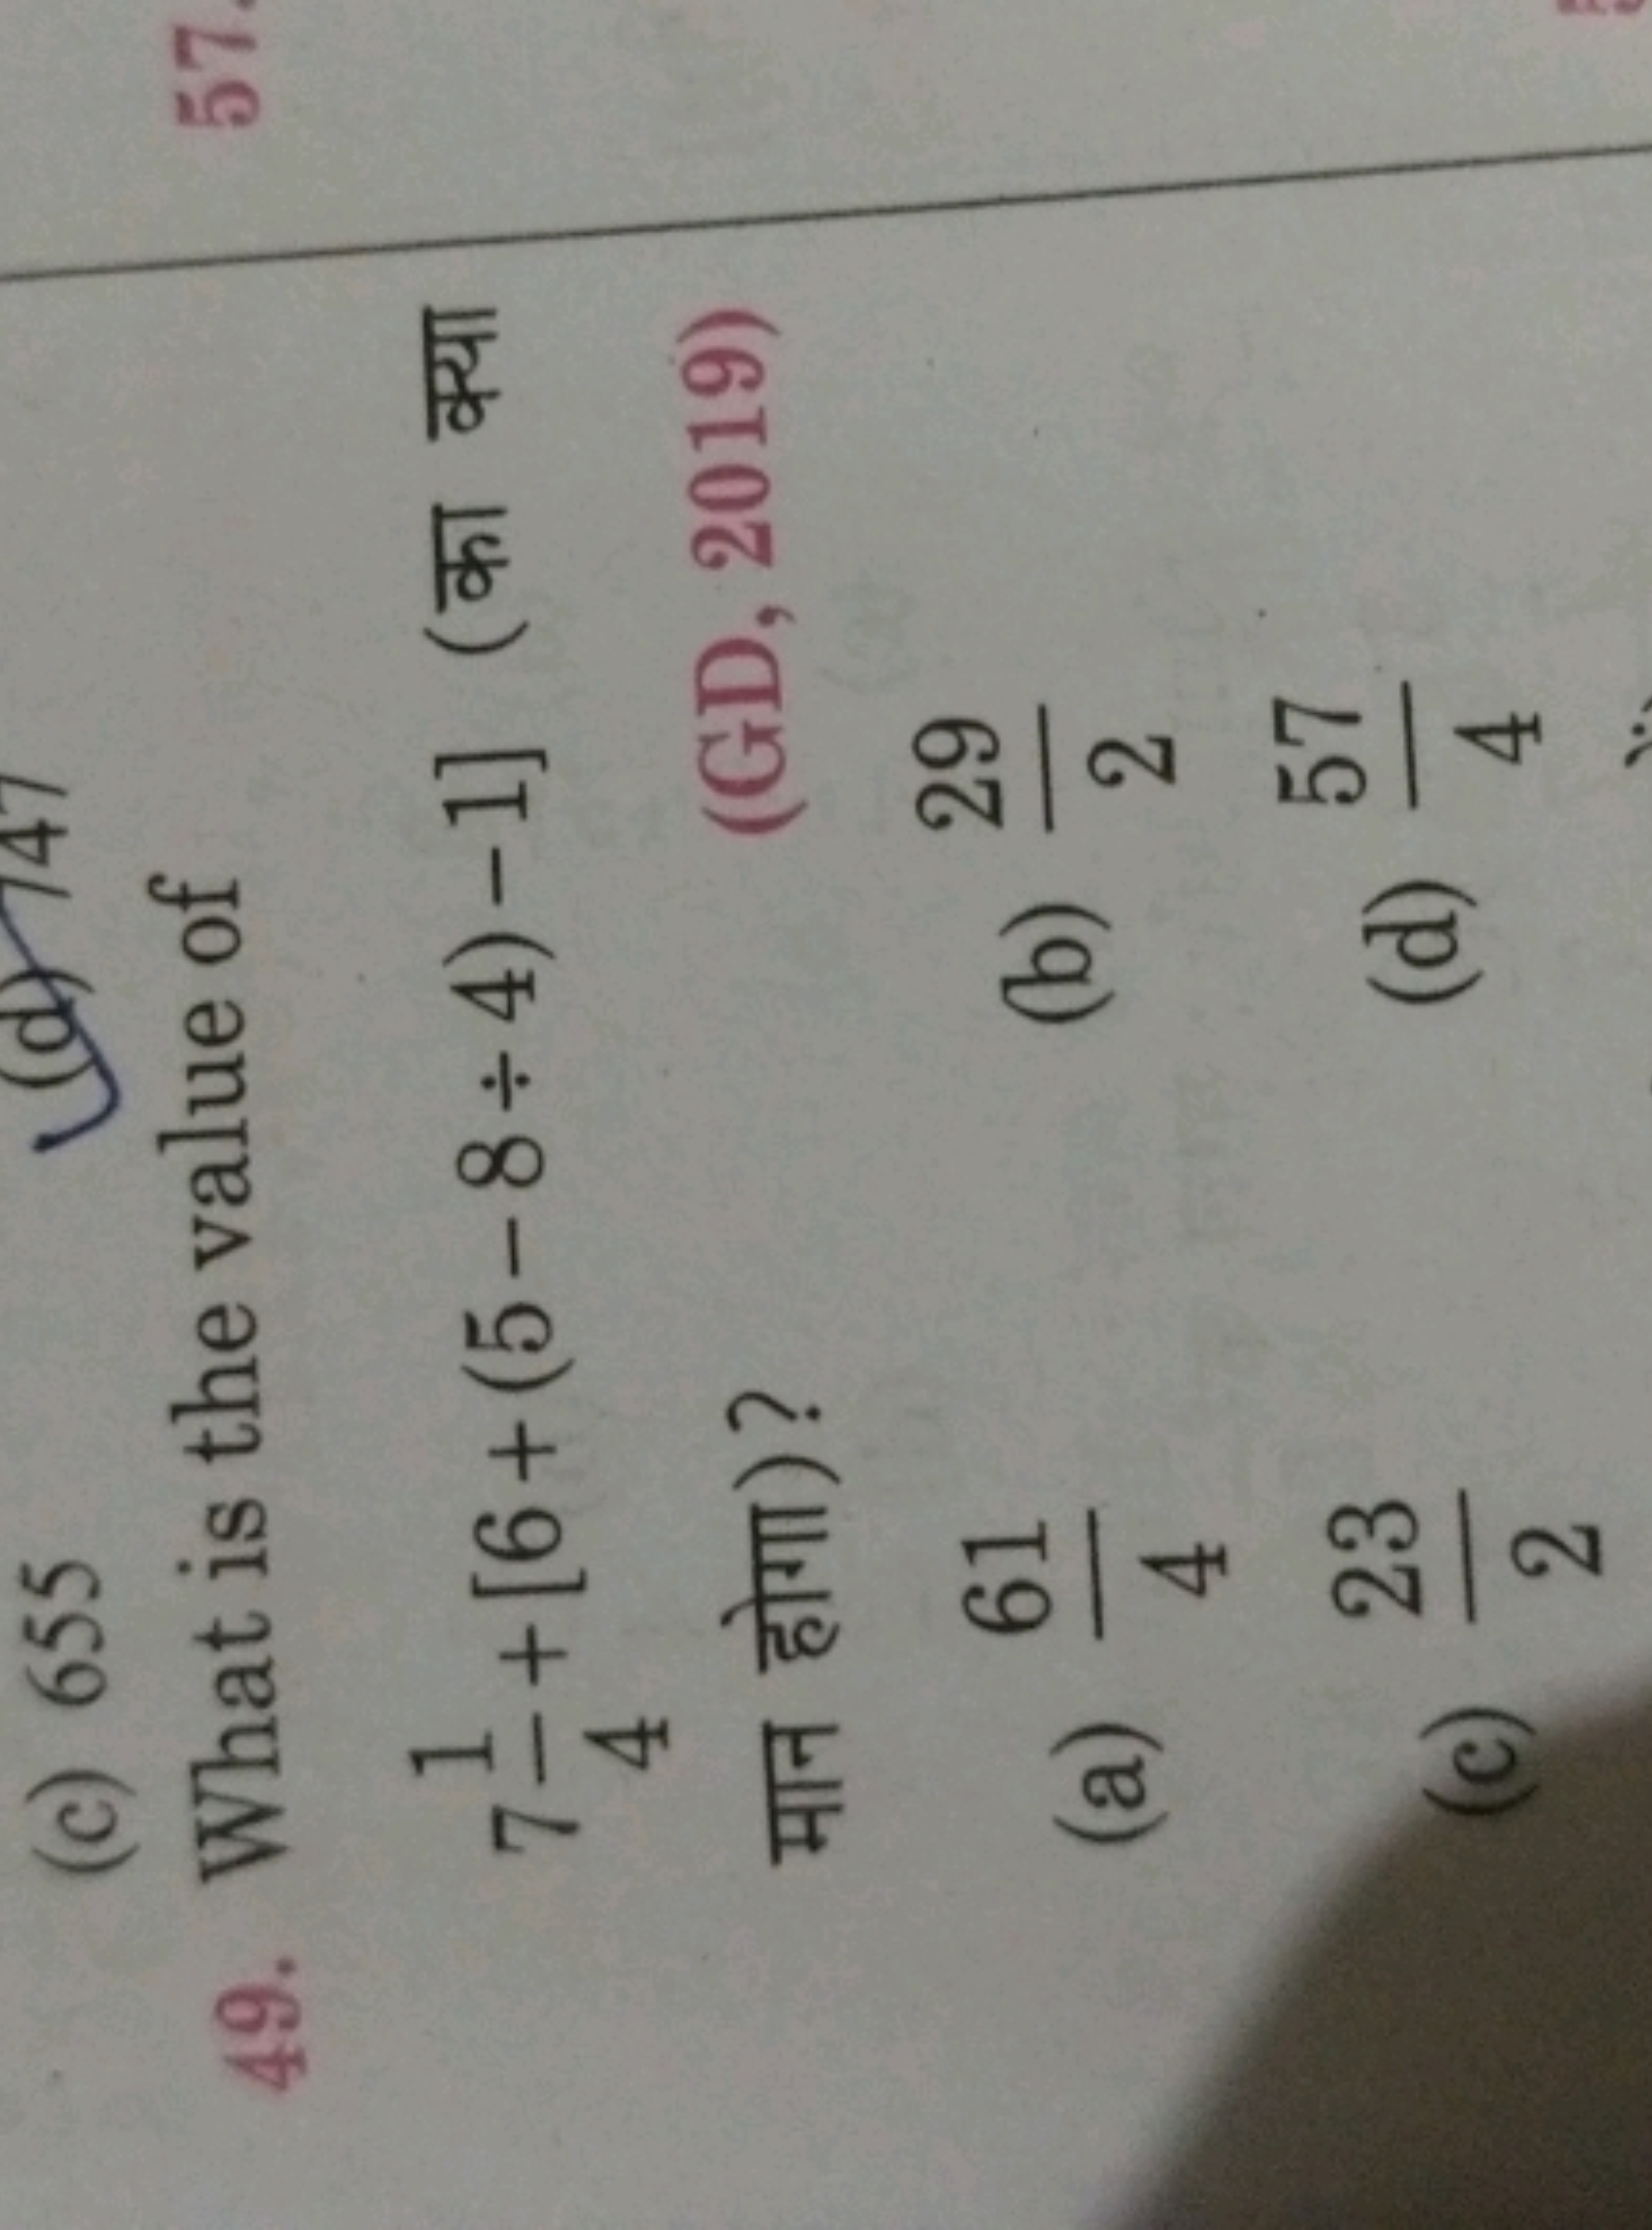 (c) 655 (d) 747
49. What is the value of
7 1/4 + [6 + (5 − 8 ÷ 4) − 1] (का क्या
मान होगा)? (GD, 2019)
(a) 61/4 (b) 29/2
(c) 23/2 (d) 57/4
57.